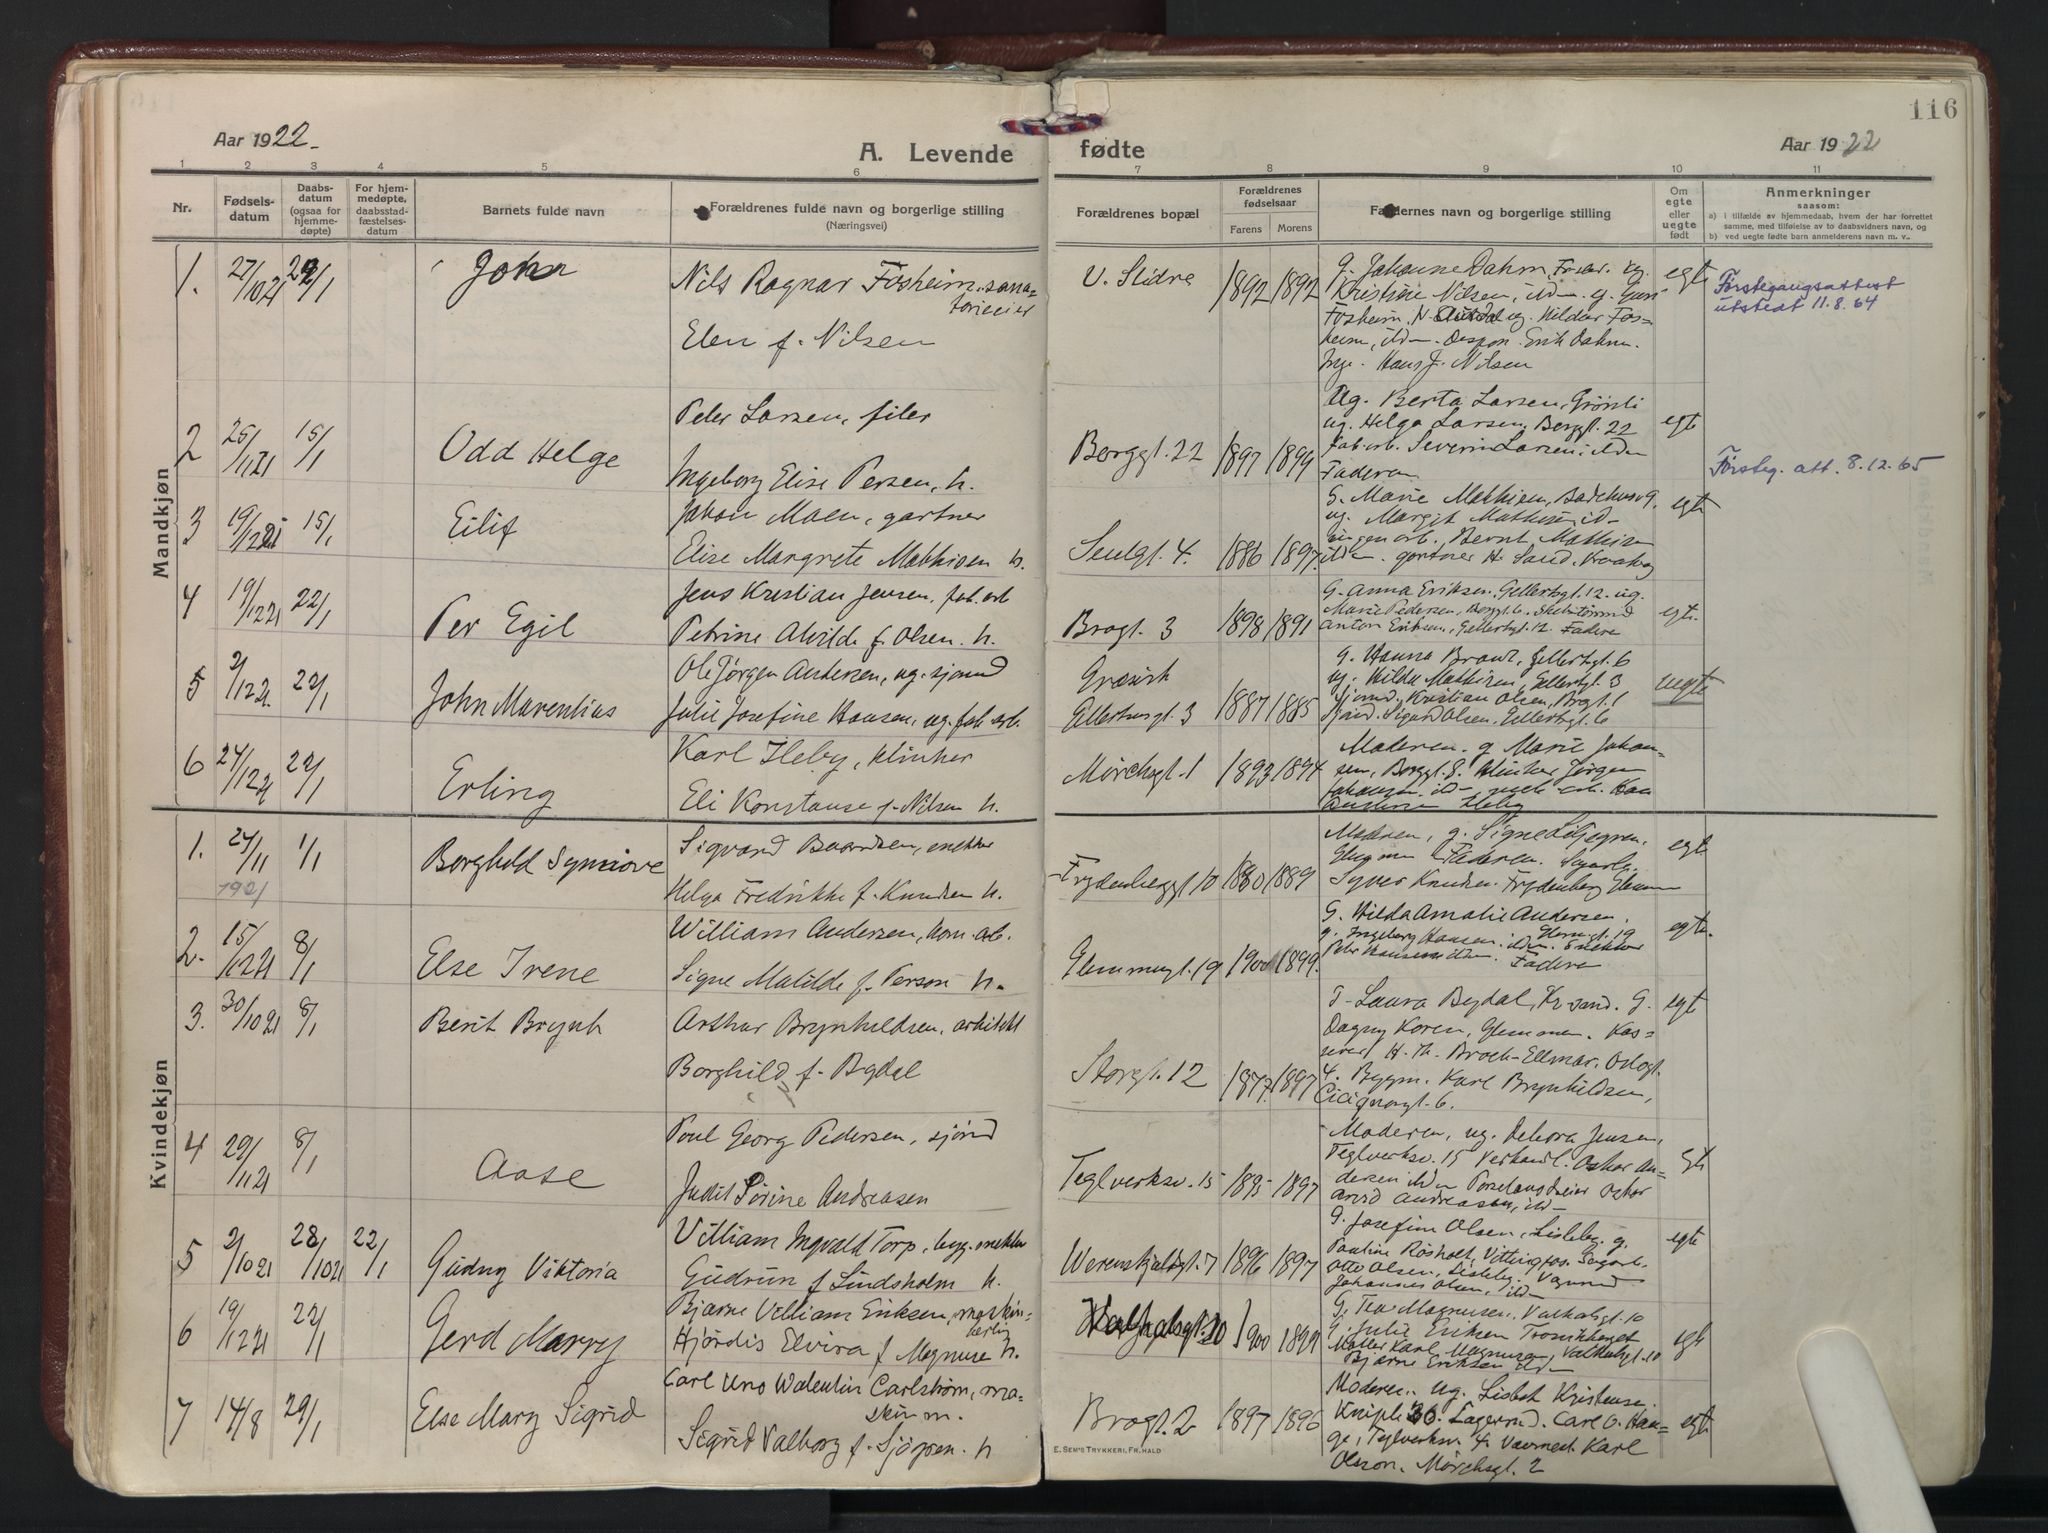 116
Aar 1922
A. Levende fødte
Aar 1922
1 2 3 4 5 6 7 8 9 10 11
Nr.
Fødselsdatum
Daabsdatum (ogsaa for hjemmedøpte)
For hjemmedøpte, daabsstadfæstelsesdatum
Barnets fulde navn
Forældrenes fulde navn og borgerlige stilling
(Næringsvei)
Forældrenes bopæl
Forældrenes fødselsaar
Farens Morens
Faddernes navn og borgerlige stilling
Om egte eller uegte født
Anmerkninger
saasom:
a) i tilfælde av hjemmedaab, hvem der har forrettet
samme, med tilføielse av to daabsvidners navn, og
b) ved uegte fødte barn anmelderens navn m. v..
Mandkjøn
1. 27/10 21 29/1 John
Nils Ragnar Fosheim, sanatorieeier
Elen f. Nilsen
V. Slidre 1892 1892
G. Johanne Dahm,
Kristine Nilsen, ildm. g. Guri
Fosheim, N. ug. Hildur Fosheim, ildm. Dispon. Erik Dahm.
Ing. Hans J. Nilsen
egte
Førstegangsattest
utstedt 11.8.64
2 25/11 21 15/1 Odd Helge
Peter Larsen, filer
Ingeborg Elise Persen, h.
Borggt. 22 1897 1899
Ug. Berta Larsen,
ug. Helga Larsen, Borggt. 22
Fab.arb. Severin Larsen, ildm
Faderen
egte
Førsteg. att. 8.12.65
3 19/12 21 15/1 Eilif
Johan Moen, gartner
Elise Margrete Mathisen h.
1886 1897
G. Marie Mathisen,
ug. Margit Mathisen, ildm
Bernt Mathisen
ildm. gartner H. Sand.
egte
4 19/12 21 22/1 Per Egil
Jens Kristian Jensen, fab.arb
Petrine Alvilde f. Olsen. h.
Brogt. 3 1898 1891
G. Anna Eriksen, Gellertsgt. 12. ug.
Marie Pedersen, Borggt. 6.
Anton Eriksen, Gellertsgt. 12. Fadere
egte.
5 2/12 21 22/1 John Marentius
Ole Jørgen Andersen, ug. sjømd
Julie Josefine Hansen, ug. fab.arb.
Græsvik
Gellertsgt. 3 1887 1885
g. Hanna Brant, Gellertsgt. 6
ug. Hilda Mathisen, Gellertsgt. 3
Sjømd. Kristian Olsen, Brogt. 1
Sjømd. Sigurd Olsen, Gellertsgt. 6
uegte
6 24/12 21 22/1 Erling
Karl Ileby, klinker
Eli Konstanse f. Nilsen h.
Mørchsgt. 1 1893 1894
Moderen. g. Marie Johansen, Borggt. 8. Klinker Jørgen
Johansen. ildm
Ileby
Kvindekjøn
1. 24/11 1921 1/1 Borghild Synnøve
Sigvard Baardsen, snekker
Helga Fredrikke f. Knudsen h.
Frydenberggt. 10 1880 1889
Moderen, g. Signe Liljegren,
Glemmen Faderen.
Syver Knudsen. Frydenberg Glemmen
egte
2. 15/12 21 8/1 Else Irene
William Andersen, kom.arb.
Signe Matilde f. Person h.
Glemmengt. 19 1900 1899.
G. Hilda Amalie Andersen,
g. Ingeborg Hansen, ildm. Snekker
Peder Hansen ildm. Faderen
egte.
3. 30/10 21 8/1 Berit Brynh
Arthur Brynhildsen, arkitekt
Borghild f. Bydal
Storgt. 12 1877. 1897
Laura Bydal, Kr.sand. G.
Dagny Koren, Glemmen. Kasserer H. Th. Broch-Ellmar, Oslogt.
4. Byggm. Karl Brynhildsen,
Cicignongt. 6.
egte
4 29/11 21 8/1 Aase
Poul Georg Pedersen, sjømd
Judit Sørine Andreasen
Teglverksv. 15 1895 1897
Moderen, ug. Debora Jensen,
Teglverksv. 15 Verkarb. Oskar Andersen ildm Porselansdreier Oskar
Arvid Andreassen, ildm
egte
5 2/10 21 28/10 21 22/1 Gudny Viktoria
William Ingvald Torp, byg.snekker
Gudrun f Lindsholm h.
Werenskjoldsgt. 7 1896 1897
G. Josefine Olsen, Lisleby. g.
Pauline Røsholt, Vittingfos.
Otto Olsen, Lisleby.
Johannes Olsen, ildm
egte
6 19/12 21 22/1 Gerd Marry
Bjarne Villiam Eriksen,
Hjørdis Elvira f Magnusen h.
Valhalsgt. 10 1900 1899
G. Tea Magnusen, Valhalsgt. 10
G. Julie Eriksen Trosvikberget
Møller Karl Magnusen, Valhalsgt. 10
Bjarne Eriksen ildm
egte
7 14/8 29/1 Else Mary Sigrid
Carl Uno Walentin Carlstrøm, maskinm.
Sigrid Valborg f. Sjøgren. h
Brogt. 2 1897 1896
Moderen. ug. Lisbet Kristensen
Knipleg. 36. Lagermd. Carl G. Hange, Teglverksv. 4. Karl
Olsson. Mørchsgt. 2
egte
E. SEM'S TRYKKERI, FR.HALD